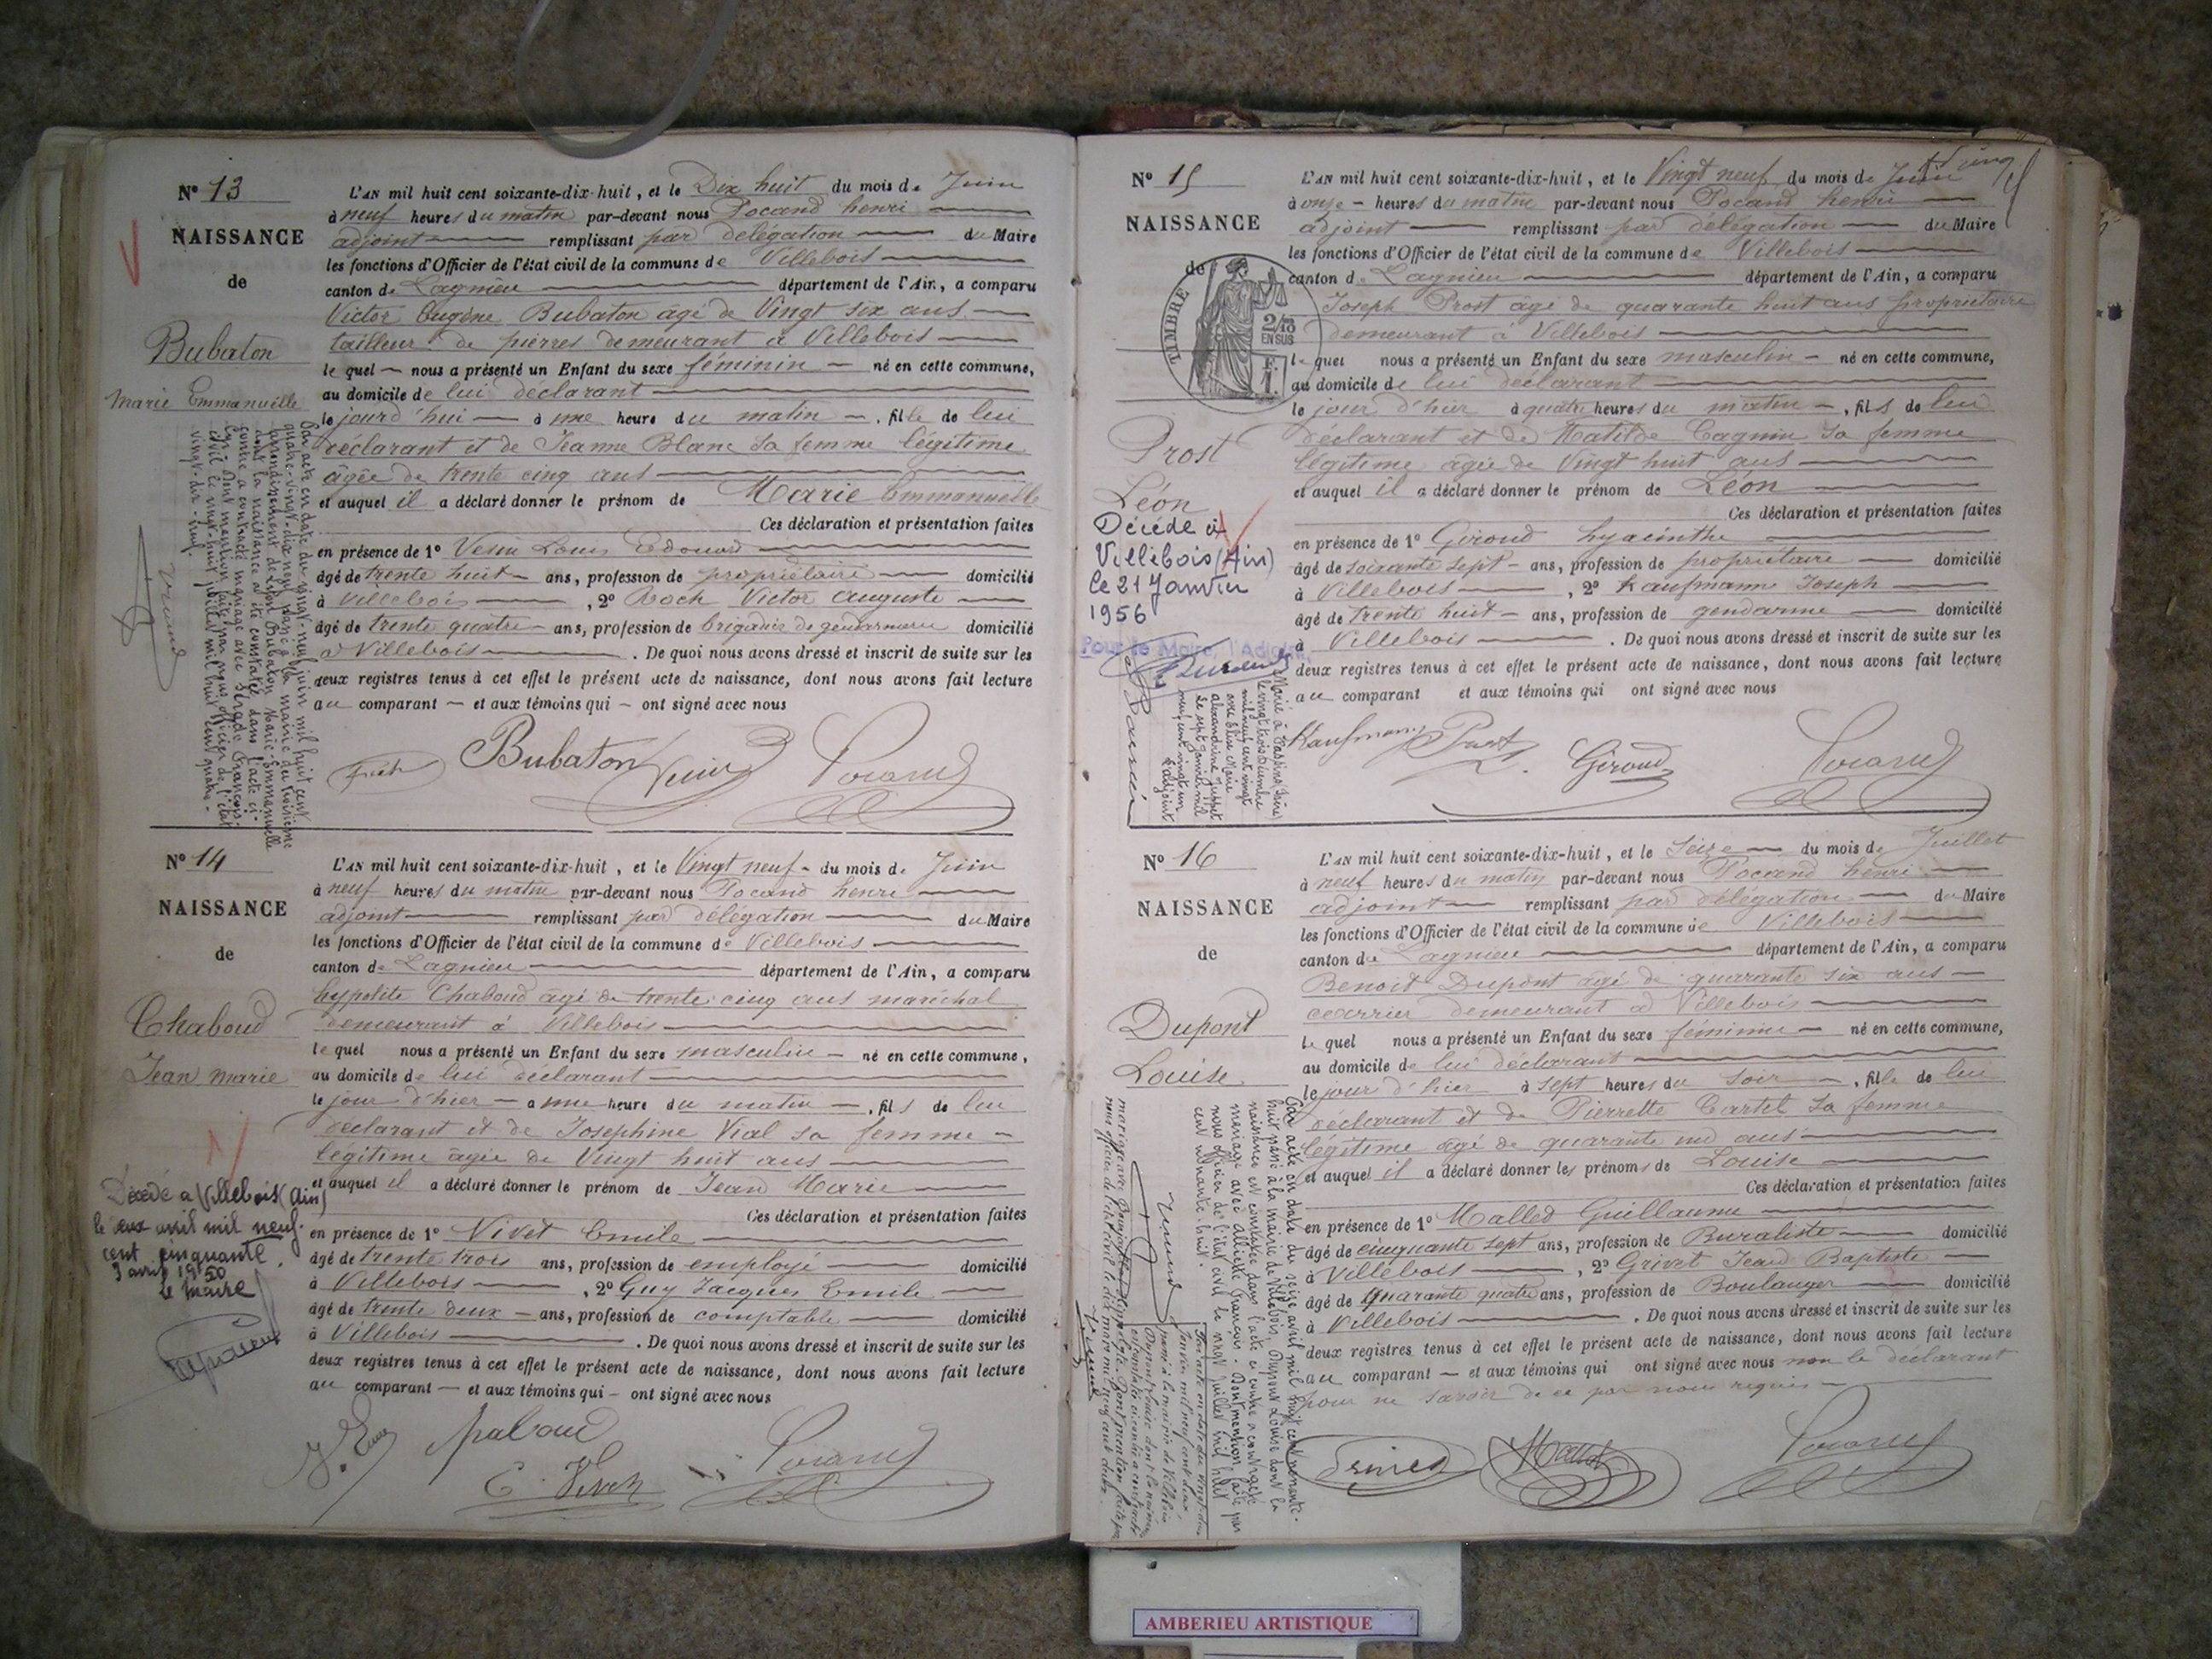 N° 13
NAISSANCE
de
Bubaton
Marie Emmanuelle
L'AN mil huit cent soixante-dix-huit, et le Dix huit du mois de Juin
à neuf heures du matin par-devant nous Pocand henri
adjoint remplissant par délégation du Maire
les fonctions d'Officier de l'état civil de la commune de Villebois
canton de Lagnieu département de l'Ain, a comparu
Victor Eugène Bubaton âgé de Vingt six ans
tailleur de pierres demeurant à Villebois
lequel nous a présenté un Enfant du sexe féminin né en cette commune,
au domicile de lui déclarant
le jourd'hui à une heure du matin, fille de lui
déclarant et de Jeanne Blanc sa femme légitime
âgée de trente cinq ans
et auquel il a déclaré donner le prénom de Marie Emmanuelle
Ces déclaration et présentation faites
en présence de 1° Louis Edouard
âgé de trente huit ans, profession de propriétaire domicilié
à Villebois, 2° Roch Victor Auguste
âgé de trente quatre ans, profession de brigadier de gendarmerie domicilié
à Villebois. De quoi nous avons dressé et inscrit de suite sur les
deux registres tenus à cet effet le présent acte de naissance, dont nous avons fait lecture
au comparant et aux témoins qui ont signé avec nous
Par acte en date du vingt-neuf juin mil huit cent
quatre-vingt-dix-neuf passé à la mairie du troisième
arrondissement de Lyon Bubaton Marie-Emmanuelle
dont la naissance a été constatée dans l'acte ci-
contre a contracté mariage avec François
Dont mention faite par nous officier de l'état
civil le vingt-huit juillet mil huit cent quatre-
vingt-dix-neuf
Bubaton
N° 14
NAISSANCE
de
Chaboud
Jean Marie
L'AN mil huit cent soixante-dix-huit, et le Vingt neuf du mois de Juin
à neuf heures du matin par-devant nous Pocand henri
adjoint remplissant par délégation du Maire
les fonctions d'Officier de l'état civil de la commune de Villebois
canton de Lagnieu département de l'Ain, a comparu
hypolite Chaboud âgé de trente cinq ans maréchal
demeurant à Villebois
lequel nous a présenté un Enfant du sexe masculin né en cette commune,
au domicile de lui déclarant
le jour d'hier à une heure du matin, fils de lui
déclarant et de Josephine Vial sa femme
légitime âgée de Vingt huit ans
et auquel il a déclaré donner le prénom de Jean Marie
Ces déclaration et présentation faites
en présence de 1° Vivet Emile
âgé de trente trois ans, profession de employé domicilié
à Villebois, 2° Guy Jacques Emile
âgé de trente deux ans, profession de comptable domicilié
à Villebois. De quoi nous avons dressé et inscrit de suite sur les
deux registres tenus à cet effet le présent acte de naissance, dont nous avons fait lecture
au comparant et aux témoins qui ont signé avec nous
Décédé à Villebois (Ain)
le deux avril mil neuf
cent cinquante.
3 avril 1950
Le Maire
N° 15
NAISSANCE
de
TIMBRE
2/10
EN SUS
F.
1.
Prost
Léon
Décédé à
Villebois (Ain)
le 21 Janvier
1956
Pour le Maire, l'Adjoint,
L'AN mil huit cent soixante-dix-huit, et le Vingt neuf du mois de Juin
à onze heures du matin par-devant nous Pocand henri
adjoint remplissant par délégation du Maire
les fonctions d'Officier de l'état civil de la commune de Villebois
canton de Lagnieu département de l'Ain, a comparu
Joseph Prost âgé de quarante huit ans propriétaire
demeurant à Villebois
lequel nous a présenté un Enfant du sexe masculin né en cette commune,
au domicile de lui déclarant
le jour d'hier à quatre heures du matin, fils de lui
déclarant et de Matilde Cagnin sa femme
légitime âgée de Vingt huit ans
et auquel il a déclaré donner le prénom de Léon
Ces déclaration et présentation faites
en présence de 1° Giroud hyacinthe
âgé de soixante sept ans, profession de propriétaire domicilié
à Villebois, 2° Kaufmann Joseph
âgé de trente huit ans, profession de gendarme domicilié
à Villebois. De quoi nous avons dressé et inscrit de suite sur les
deux registres tenus à cet effet le présent acte de naissance, dont nous avons fait lecture
au comparant et aux témoins qui ont signé avec nous
Kaufmann Prost Giroud
N° 16
NAISSANCE
de
Dupont
Louise
L'AN mil huit cent soixante-dix-huit, et le Seize du mois de Juillet
à neuf heures du matin par-devant nous Pocand henri
adjoint remplissant par délégation du Maire
les fonctions d'Officier de l'état civil de la commune de Villebois
canton de Lagnieu département de l'Ain, a comparu
Benoit Dupont âgé de quarante six ans
carrier demeurant à Villebois
lequel nous a présenté un Enfant du sexe féminin né en cette commune,
au domicile de lui déclarant
le jour d'hier à sept heures du soir, fille de lui
déclarant et de Pierrette Cartet sa femme
légitime âgé de quarante un ans
et auquel il a déclaré donner les prénoms de Louise
Ces déclaration et présentation faites
en présence de 1° Malled Guillaume
âgé de cinquante sept ans, profession de Buraliste domicilié
à Villebois, 2° Grivet Jean Baptiste
âgé de quarante quatre ans, profession de Boulanger domicilié
à Villebois. De quoi nous avons dressé et inscrit de suite sur les
deux registres tenus à cet effet le présent acte de naissance, dont nous avons fait lecture
au comparant et aux témoins qui ont signé avec nous non le déclarant
pour ne savoir de ce par nous requis
Par acte en date du seize avril mil huit cent nonante-
huit passé à la mairie de Villebois, Dupont Louise dont la
naissance est constatée dans l'acte ci-contre a contracté
mariage avec François. Dont mention faite par
nous officier de l'état civil le neuf juillet mil huit
cent nonante-huit.
AMBERIEU ARTISTIQUE